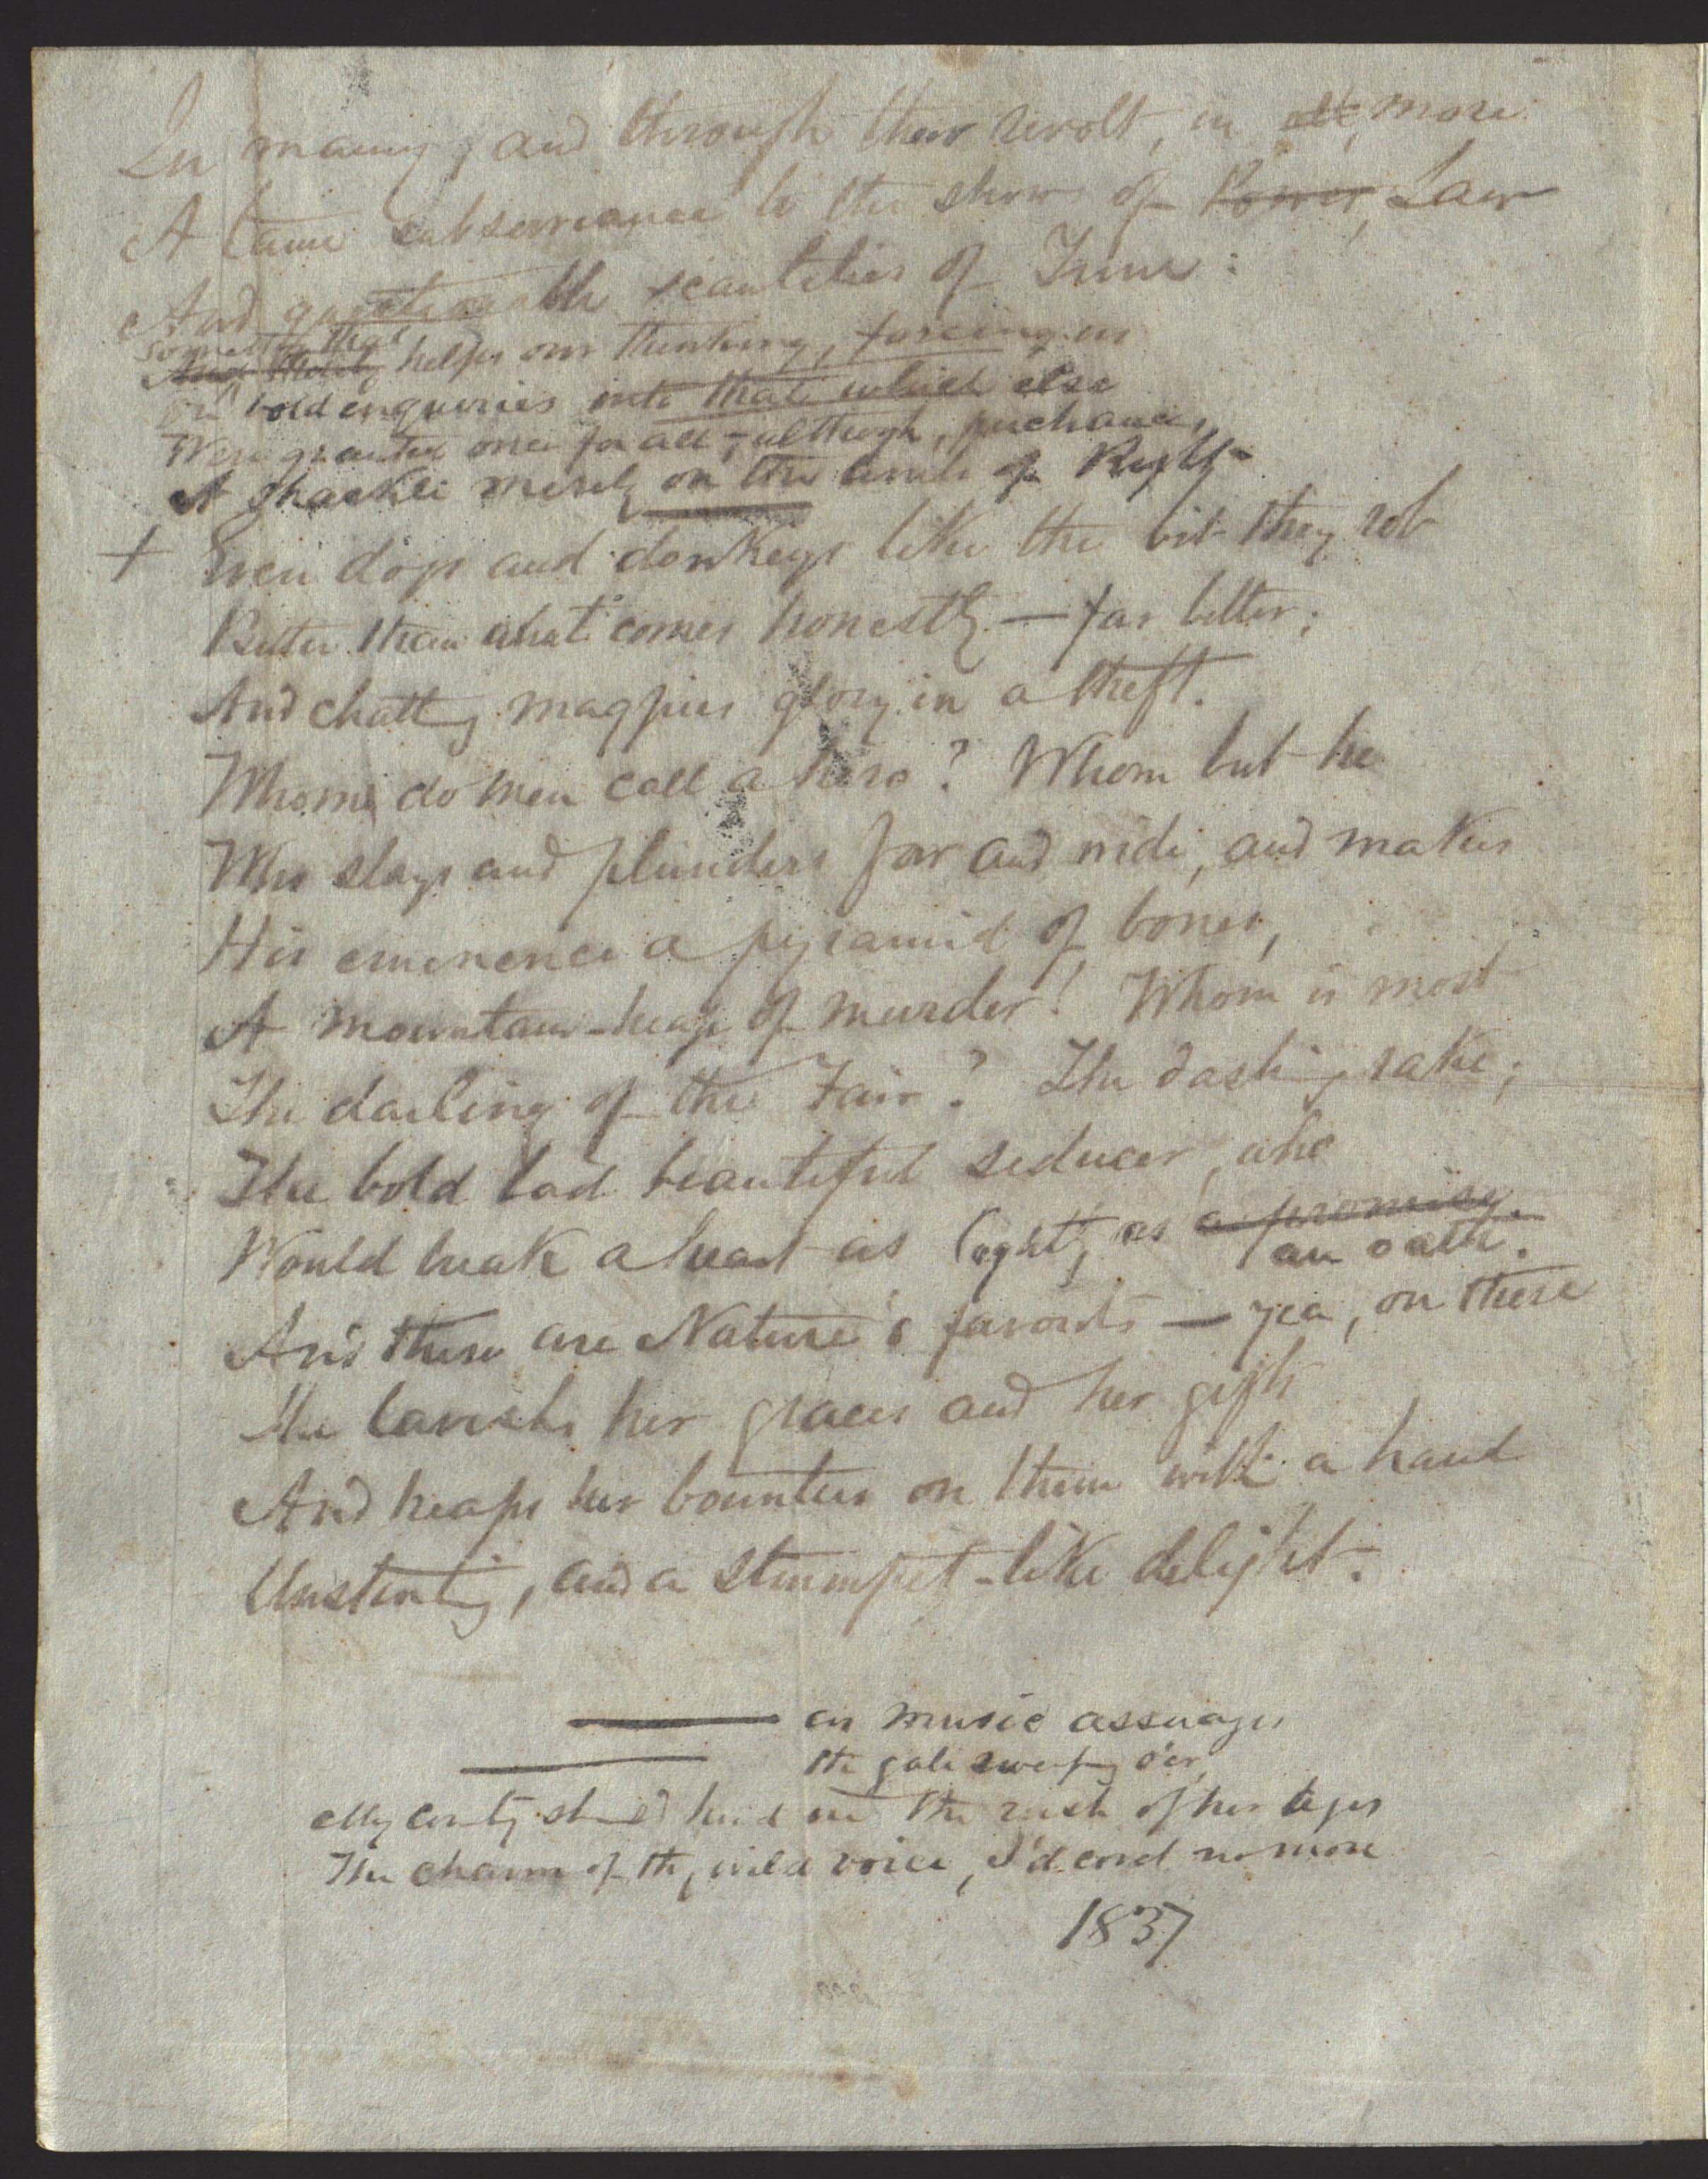 In many, and through their revolt, in all, more
A tame subserviance to the show of Power, Law
And questionable scantities of Time:
something that
And that, helps our thinking, forcing us
on bold enquiries into that which else
Were granted once for all; although, perchance,
A shackle merely on the limb of Right.
+ Even dogs and donkeys like the bit they rob
Better than what comes honestly — far better;
And chattg magpies glory in a theft.
Whom do men call a hero? Whom but he
Who slays and plunders far and wide, and makes
His eminence a pyramid of bones,
A mountain-heap of murder! Whom is most
The darling of the Fair? The dashing rake;
The bold bad beautiful seducer, who
Would break a heart as lightly as a promise.
an oath.
And these are Nature's favorits — yea, on these
She lavishs her graces and her gifts
And heaps her bounties on them with a hand
Unstinting, and a strumpet-like delight.
as music assuages
the gale sweepg o'er
My the rush of her
The charm of thy wild voice, I'd no more
1837